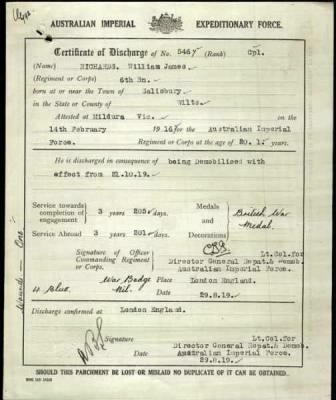 AUSTRALIAN IMPERIAL EXPEDITIONARY FORCE.
Certificate of Discharge of No. 5467 (Rank) Cpl.
(Name) RICHARDS, William James
(Regiment or Corps) 6th Bn.
born at or near the Town of Salisbury
in the State or County of Wilts.
Attested at Mildura Vic. on the
14th February 1916 for the Australian Imperial
Force. Regiment or Corps at the age of 20.1 years
He is discharged in consequence of being Demobilised with
effect from 21.10.19.
Service towards completion of engagement 3 years 205 days.
Service Abroad 3 years 201 days
Medals and Decorations British War Medal.
Signature of Officer Commanding Regiment or Corps.
Lt.Col.for
Director General Repat.& Demob.
Australian Imperial Force.
War Badge Nil.
Place London England.
4 Blue
29.8.19
Wounds — One
Discharge confirmed at London England.
Signature
Lt.Col.for
Director General Repat.& Demob.
Australian Imperial Force.
Date 29.8.19
SHOULD THIS PARCHMENT BE LOST OR MISLAID NO DUPLICATE OF IT CAN BE OBTAINED.